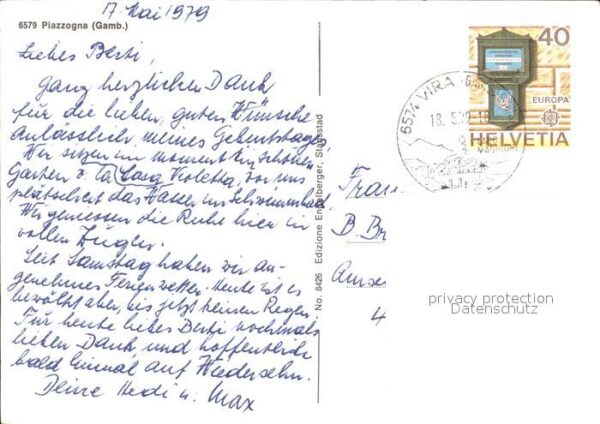 17. Mai 1979
6579 Piazzogna (Gamb.)
Liebes Berti,
ganz herzlichen Dank
für die lieben, guten Wünsche
anlässlich meines Geburtstages.
Wir sitzen im Moment im schönen
Garten v. la Casa Violetta, vor uns
plätschert das Wasser im Schwimmbad.
Wir geniessen die Ruhe hier in
vollen Zügen.
Seit Samstag haben wir an-
genehmes Ferienwetter. Heute ist es
bewölkt aber, bis jetzt keinen Regen.
Für heute liebes Berti nochmals
lieben Dank und hoffentlich
bald einmal auf Wiedersehn.
Deine Hedi u. Max
No. 8426 Edizione Engelberger, Stansstad
40
EUROPA
HELVETIA
6574 VIRA
18. 5. 79-18
Frau
B. Br
4
privacy protection
Datenschutz